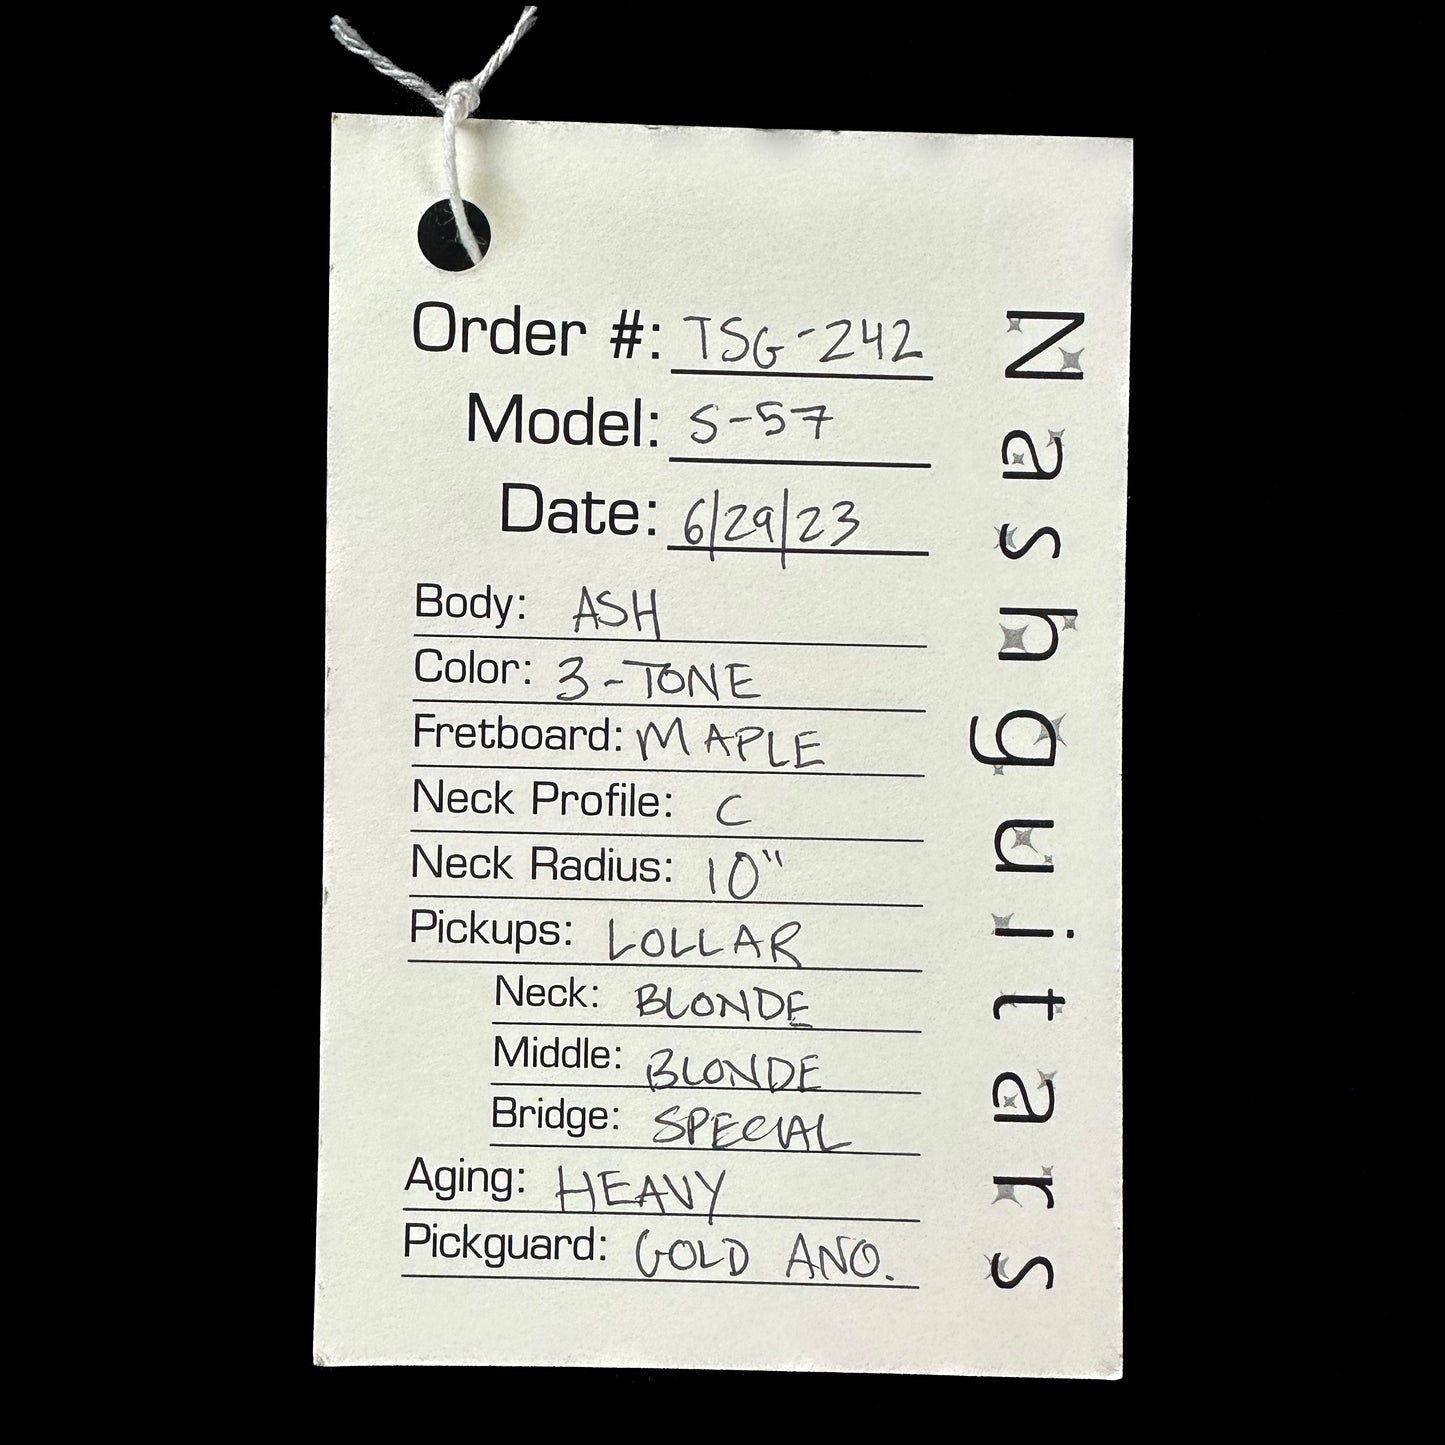 Order #: TSG-242
Model: S-57
Date: 6/29/23
Body: ASH
Color: 3-TONE
Fretboard: MAPLE
Neck Profile: C
Neck Radius: 10"
Pickups: LOLLAR
Neck: BLONDE
Middle: BLONDE
Bridge: SPECIAL
Aging: HEAVY
Pickguard: GOLD ANO.
Nashguitars